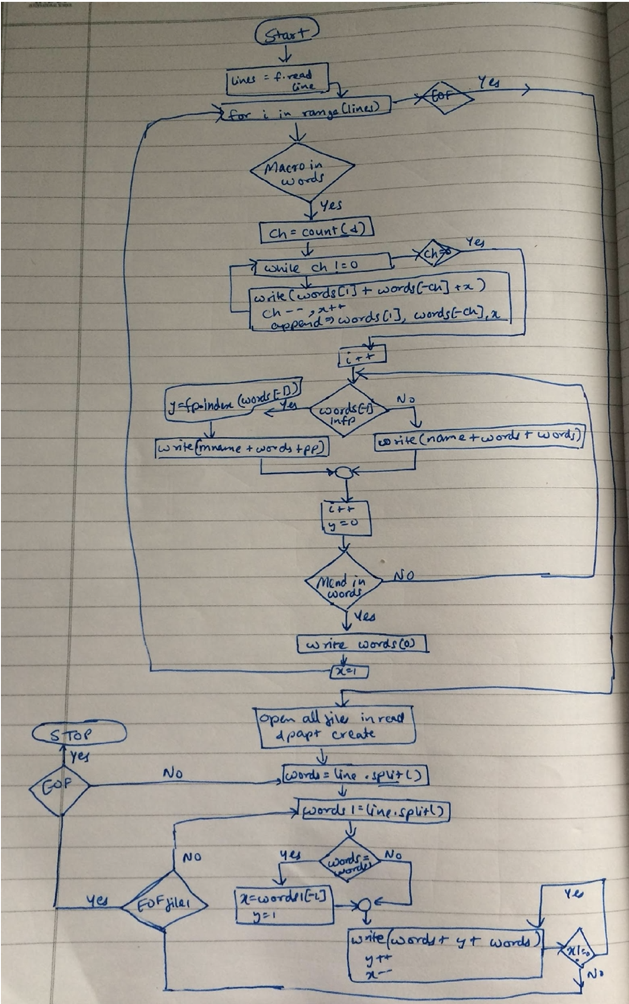 Start
lines = f.read
line
for i in range(lines)
EOF
Yes
Macro in
words
Yes
ch = count(&)
while ch != 0
ch=0
Yes
write(words[1] + words[-ch] + x)
ch--, x++
append => words[1], words[-ch], x
i++
y=fp.index(words[-1])
Yes
words[-1]
infp
No
write(mname + words + pp)
write(name + words + words)
i++
y=0
Mend in
words
NO
Yes
write words(0)
x=1
Open all files in read
create
STOP
Yes
EOF
No
words = line.split()
words1 = line.split()
NO
Yes
words=
words1
No
Yes
EOF file1
x=words1[-1]
y=1
Yes
write(words + y + words)
y++
x--
x!=0
No